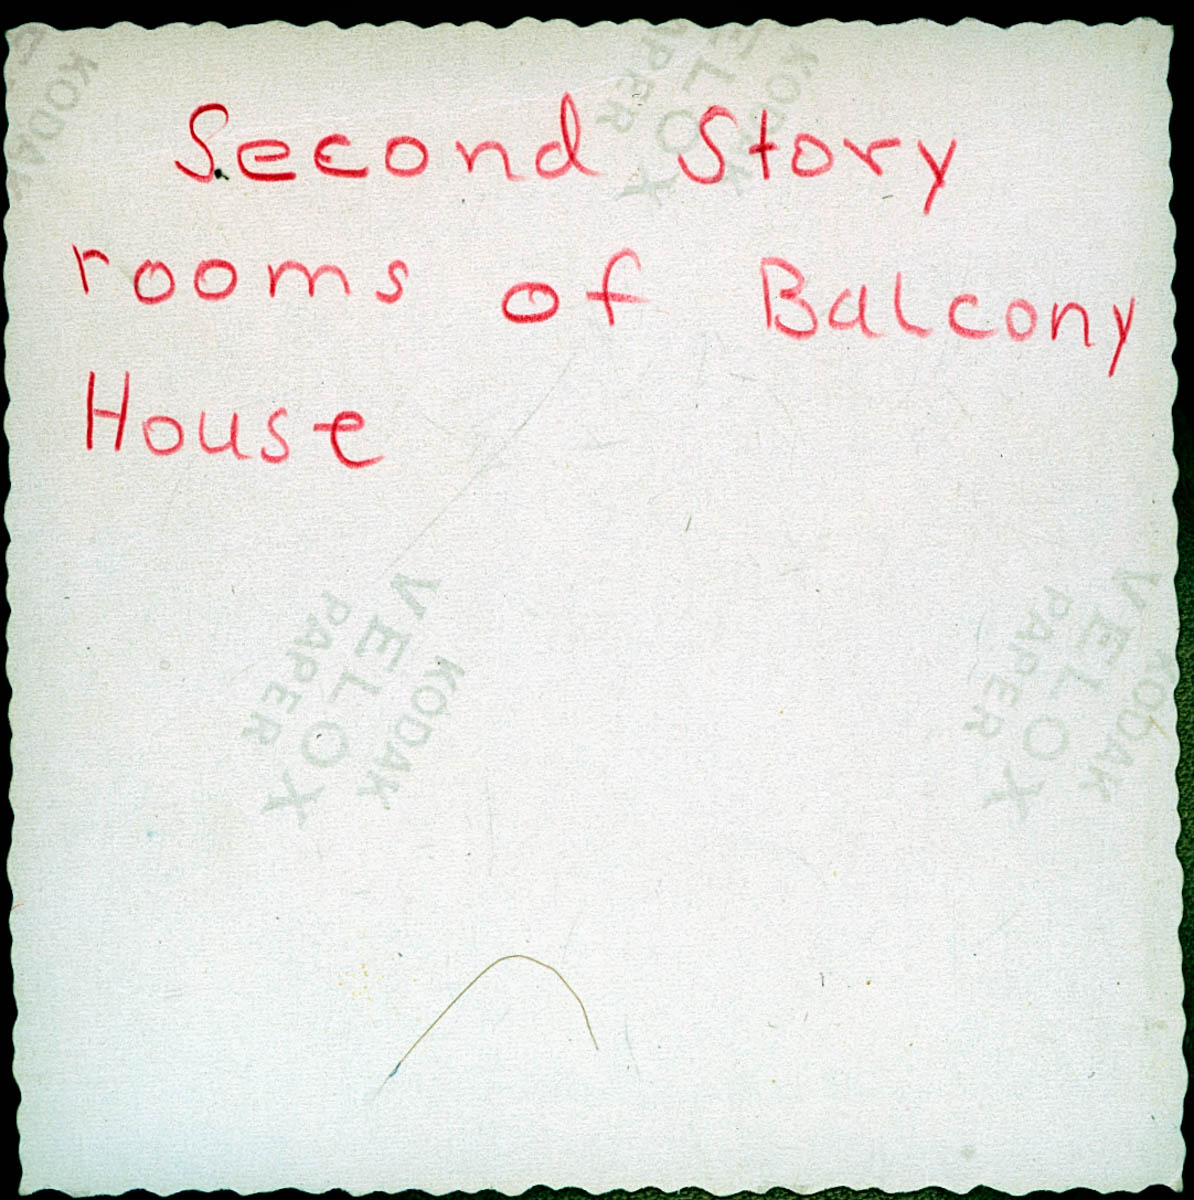 Second Story
rooms of Balcony
House
KODAK
VELOX
PAPER
KODAK
VELOX
PAPER
KODAK
VELOX
PAPER
KODAK